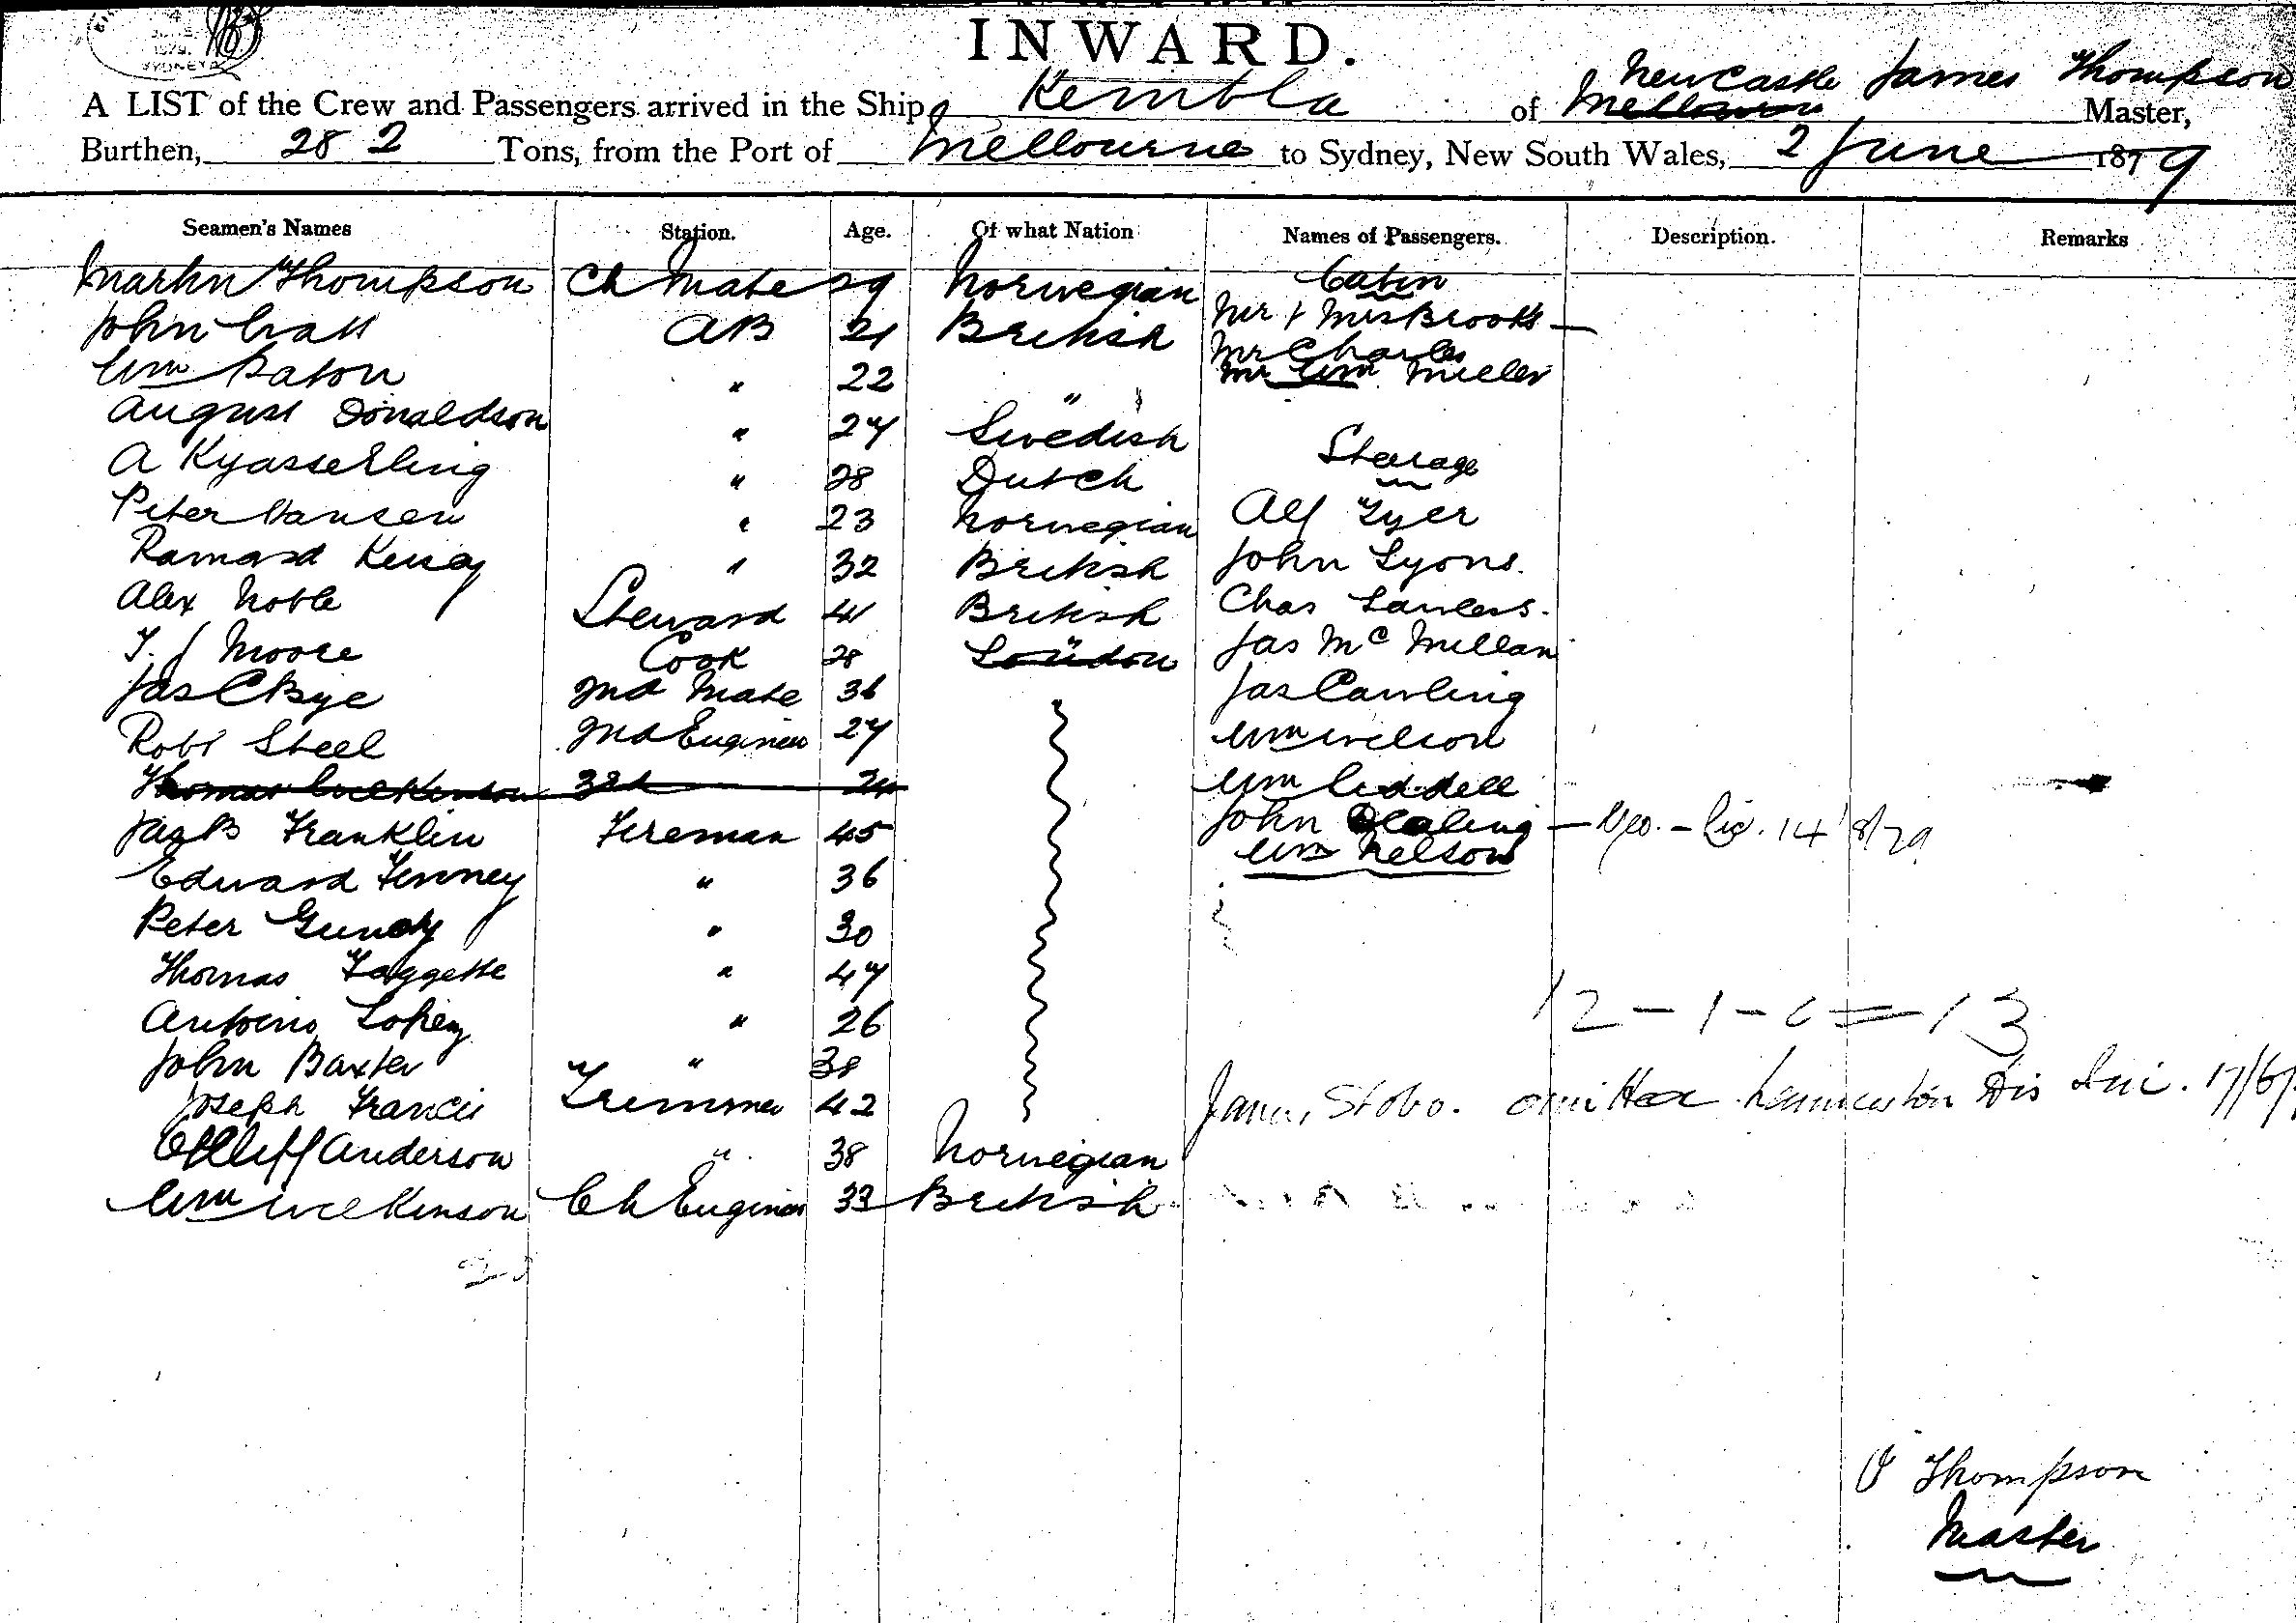 INWARD.
A LIST of the Crew and Passengers arrived in the Ship Kembla of Newcastle James Thompson Master,
Burthen, 282 Tons, from the Port of Melbourne to Sydney, New South Wales, 2 June 1879
Seamen's Names Station. Age. Of what Nation Names of Passengers. Description. Remarks
Martin Thompson Ch Mate 29 Norwegian Cabin
John AB 21 British Mr & Mrs Brooks
Wm Paton " 22 " Mr Charles
Mr Wm Miller
August Donaldson " 27 Swedish
A Kyasserling " 28 Dutch Steerage
Peter Hansen " 23 Norwegian Alf Tyer
Ramard " 32 British John Lyons.
Alex Noble Steward 41 British Chas Lawless.
T. J Moore Cook 28 London Jas Mc Millan
Jas C Bye 2nd Mate 36 Jas Cawling
Robt Steel 2nd Engineer 27 Wm Wilson
Thomas Wilkinson 3rd 24 Wm Liddell
Jas B Franklin Fireman 45 John
Edward Tenney " 36 Wm Nelson
Peter Gundy " 30
Thomas Taggette " 47
Antoino Lopez " 26
John Baxter " 38
Joseph Francis Trimmer 42
James Stobo. omitted
Anderson " 38 Norwegian
Wm Wilkinson Ch Engineer 33 British
12 - 1 - 0 = 13
J Thompson
Master